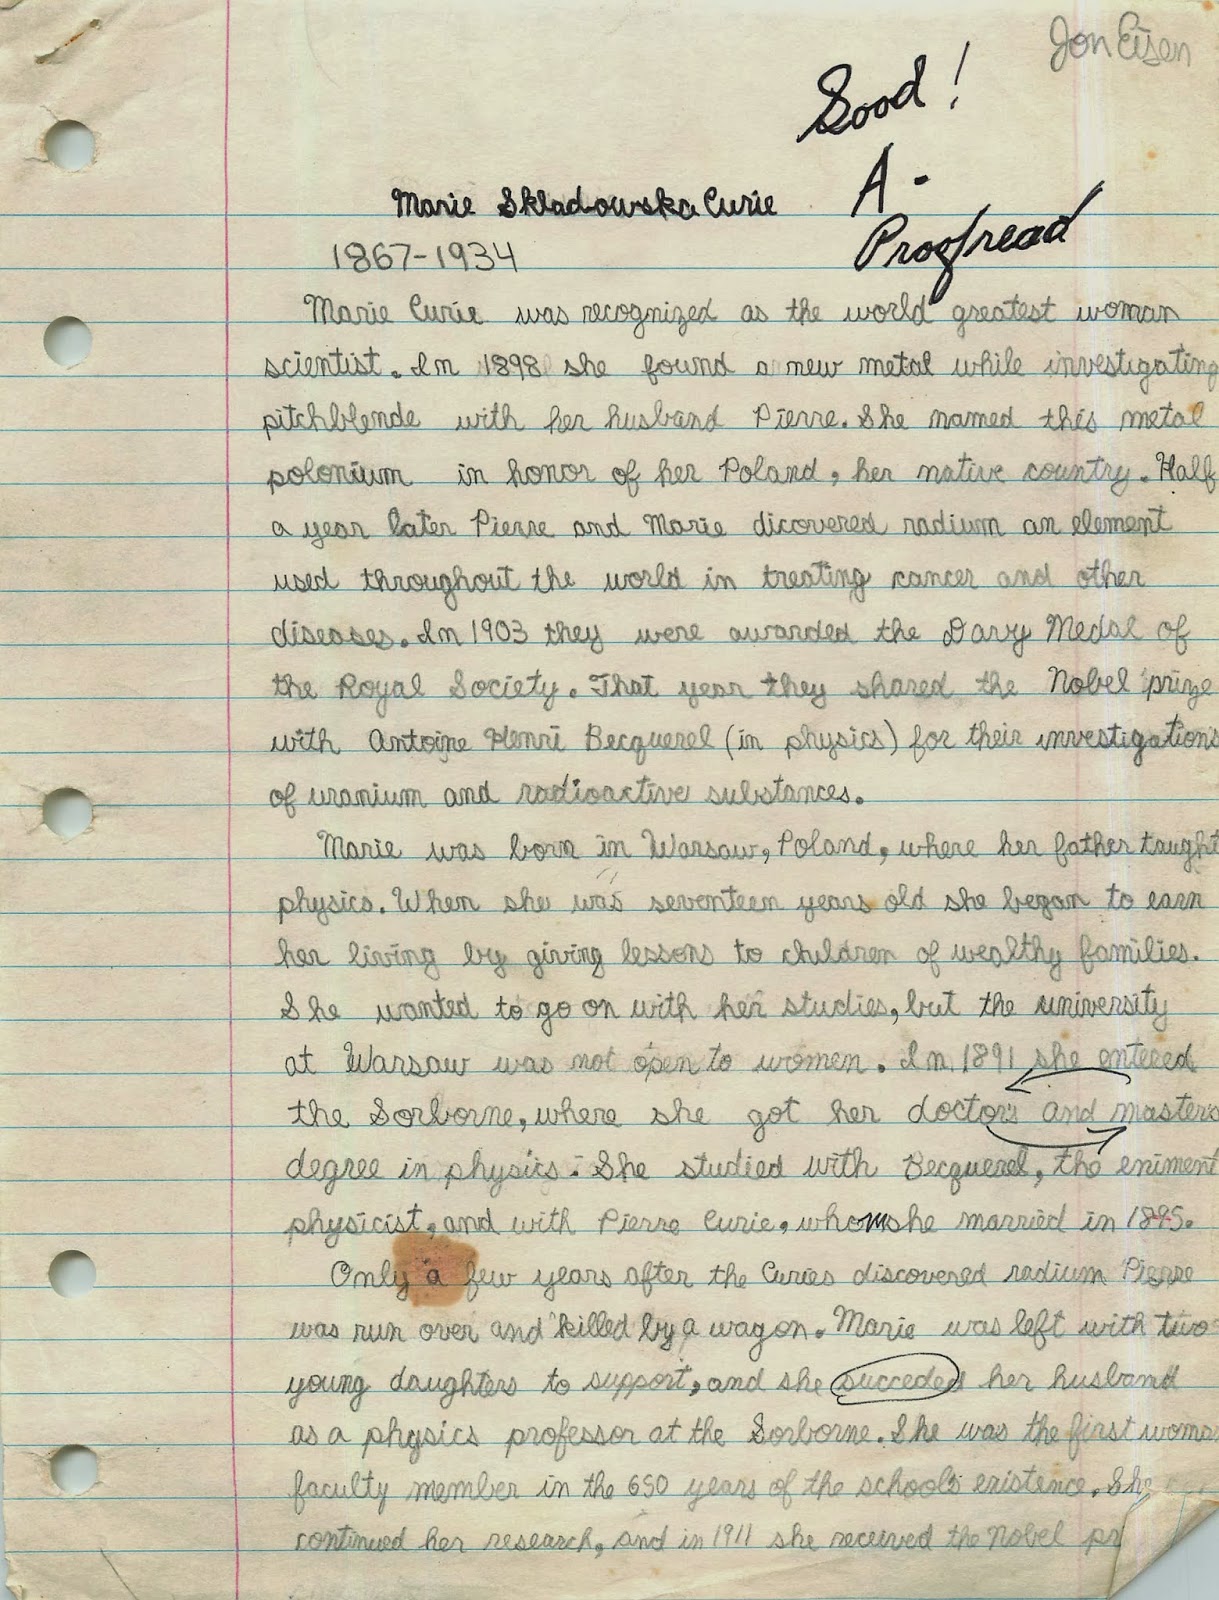 Jon Eisen
Good!
A-
Proofread
Marie Skladowska Curie
1867-1934
Marie Curie was recognized as the world greatest woman
scientist. In 1898 she found a new metal while investigating
pitchblende with her husband Pierre. She named this metal
polonium in honor of her Poland, her native country. Half
a year later Pierre and Marie dicovered radium an element
used throughout the world in treating cancer and other
diseases. In 1903 they were awarded the Davy Medal of
the Royal Society. That year they shared the Nobel prize
with Antoine Henri Becquerel (in physics) for their investigations
of uranium and radioactive substances.
Marie was born in Warsaw, Poland, where her father taught
physics. When she was seventeen years old she began to earn
her living by giving lessons to children of wealthy families.
She wanted to go on with her studies, but the university
at Warsaw was not open to women. In 1891 she entered
the Sorborne, where she got her doctors and masters
degree in physics. She studied with Becquerel, the eniment
physicist, and with Pierre Curie, whom she married in 1895.
Only a few years after the Curies discovered radium Pierre
was run over and killed by a wagon. Marie was left with two
young daughters to support, and she succeded her husband
as a physics professor at the Sorborne. She was the first woman
faculty member in the 650 years of the schools existence. She
continued her research, and in 1911 she received the Nobel pr